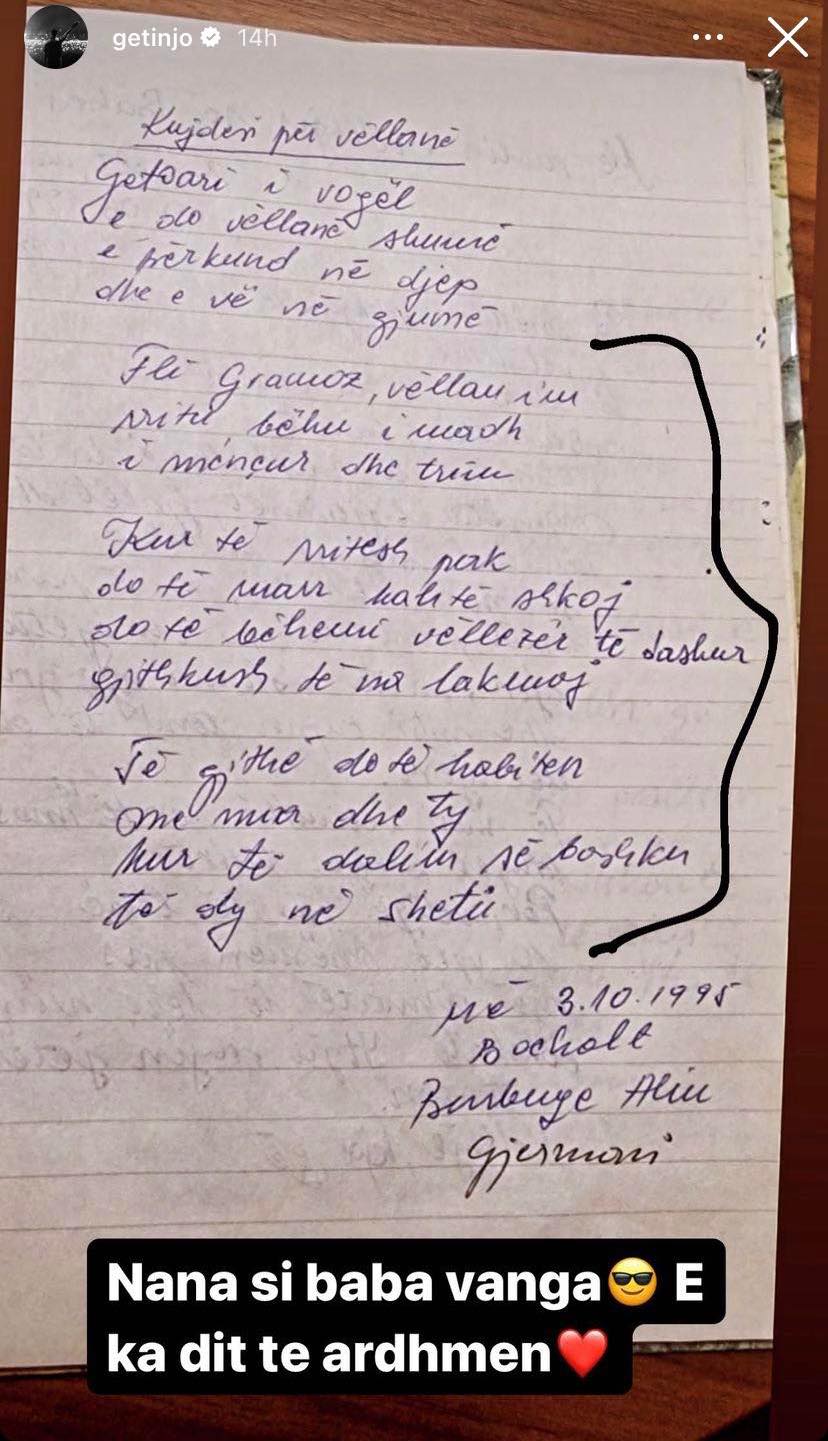 getinjo 14h
Kujdesi për vëllanë
Getoari i vogël
e do vëllanë shumë
e përkund në djep
dhe e vë në gjumë
Fli Gramoz, vëllau im
rritu, bëhu i madh
i mençur dhe trim
Kur të rritesh pak
do të marr kah të shkoj
do të bëhemi vëllezër të dashur
gjithkush të na lakmoj
Të gjithë do të habiten
me mua dhe ty
kur të dalim së bashku
të dy në shëti
më 3.10.1995
Bocholt
Burbuqe Aliu
Gjermani
Nana si baba vanga😎 E
ka dit te ardhmen❤️